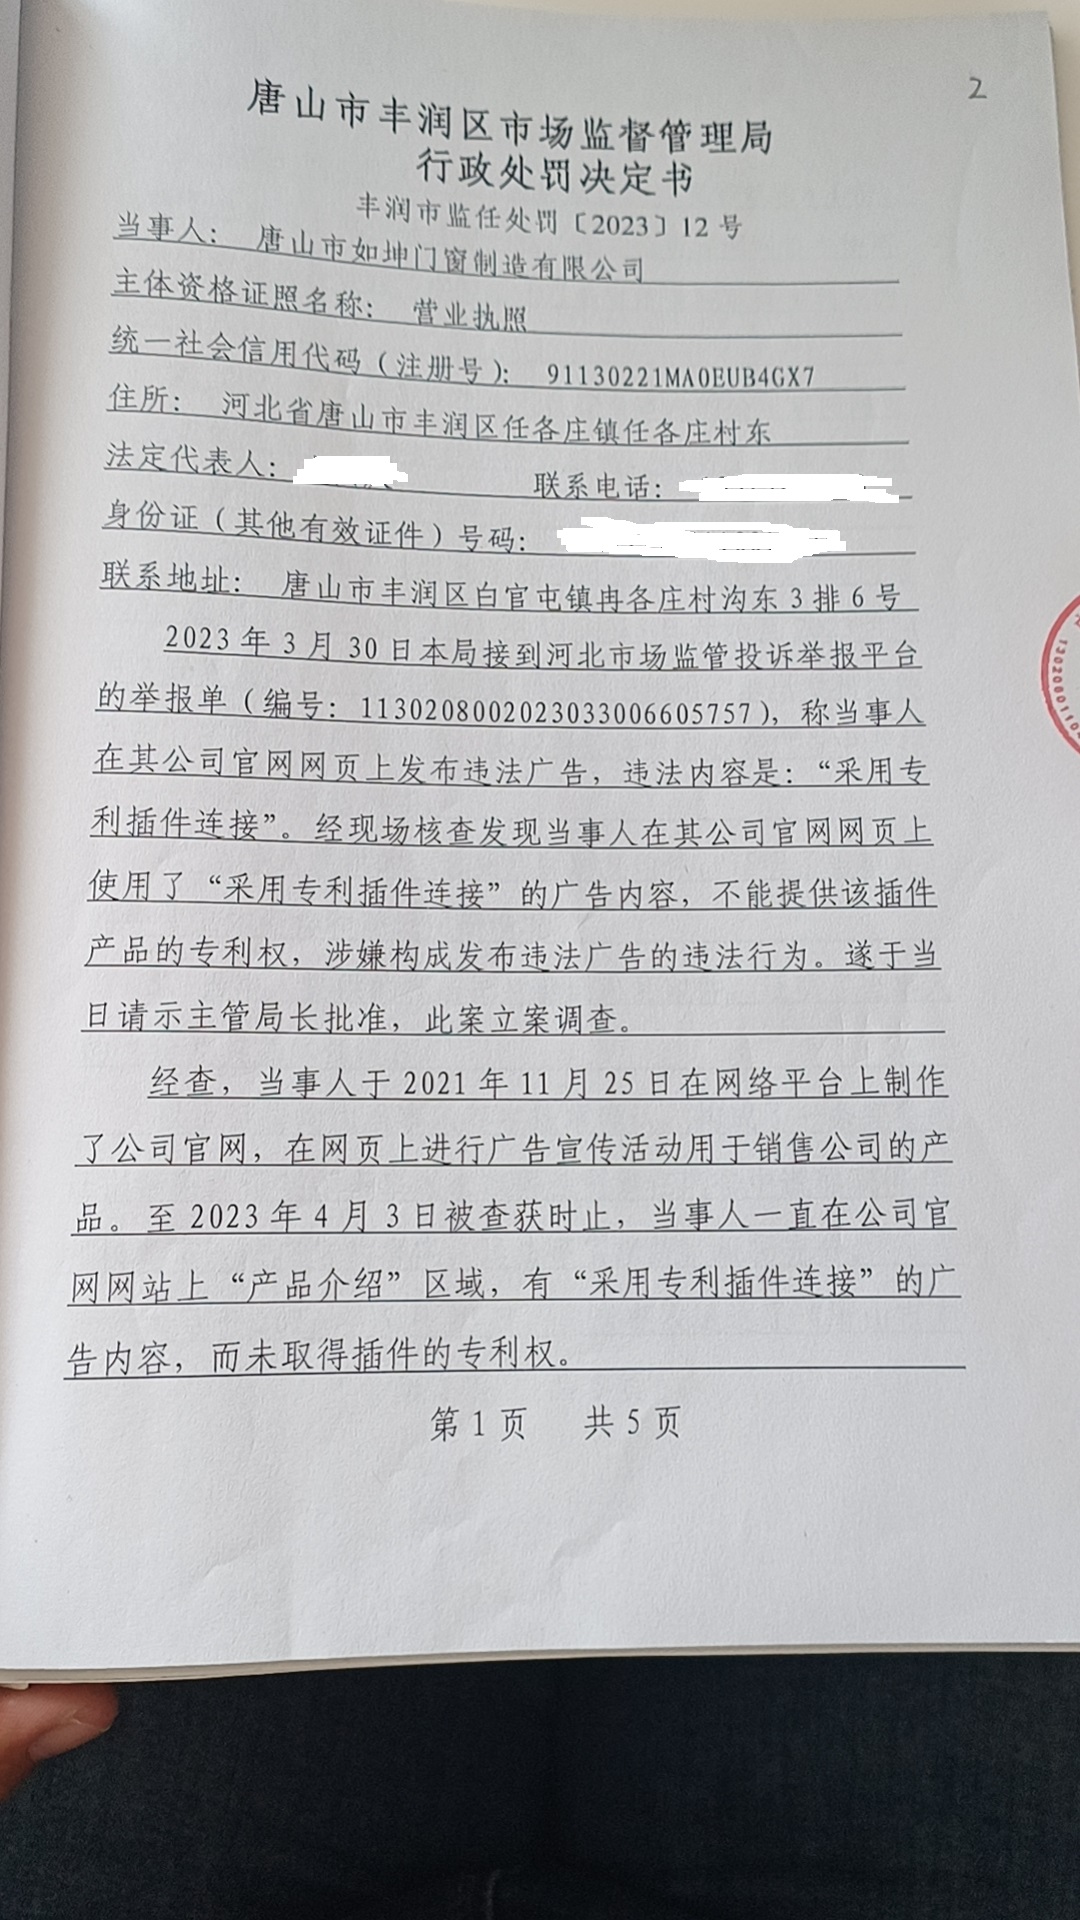 2
唐山市丰润区市场监督管理局
行政处罚决定书
丰润市监任处罚〔2023〕12号
当事人: 唐山市如坤门窗制造有限公司
主体资格证照名称: 营业执照
统一社会信用代码(注册号): 91130221MA0EUB4GX7
住所: 河北省唐山市丰润区任各庄镇任各庄村东
法定代表人: 联系电话:
身份证(其他有效证件)号码:
联系地址: 唐山市丰润区白官屯镇冉各庄村沟东3排6号
2023年3月30日本局接到河北市场监管投诉举报平台
的举报单(编号: 1130208002023033006605757), 称当事人
在其公司官网网页上发布违法广告, 违法内容是: “采用专
利插件连接”。经现场核查发现当事人在其公司官网网页上
使用了“采用专利插件连接”的广告内容, 不能提供该插件
产品的专利权, 涉嫌构成发布违法广告的违法行为。遂于当
日请示主管局长批准, 此案立案调查。
经查, 当事人于2021年11月25日在网络平台上制作
了公司官网, 在网页上进行广告宣传活动用于销售公司的产
品。至2023年4月3日被查获时止, 当事人一直在公司官
网网站上“产品介绍”区域, 有“采用专利插件连接”的广
告内容, 而未取得插件的专利权。
第1页 共5页